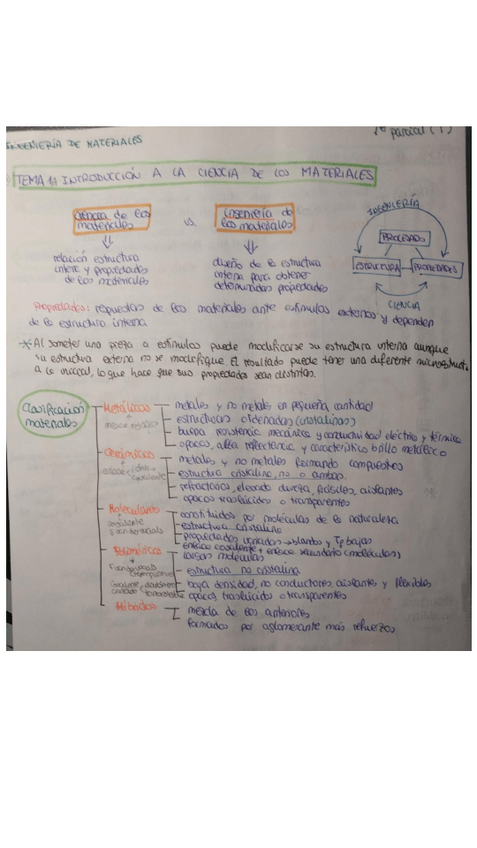 INGENIERÍA DE MATERIALES
1º parcial (1)
TEMA 1: INTRODUCCIÓN A LA CIENCIA DE LOS MATERIALES
Ciencia de los materiales
vs.
Ingeniería de los materiales
relación estructura
interna y propiedades
de los materiales
diseño de la estructura
interna para obtener
determinadas propiedades
INGENIERÍA
PROCESADO
ESTRUCTURA
PROPIEDADES
CIENCIA
Propiedades: respuestas de los materiales ante estímulos externos y dependen
de la estructura interna
* Al someter una pieza a estímulos puede modificarse su estructura interna aunque
su estructura externa no se modifique. El resultado puede tener una diferente microestruct.
a la inicial, lo que hace que sus propiedades sean distintas.
Clasificación
materiales
Metálicos
metales y no metales en pequeña cantidad
estructuras ordenadas (cristalinas)
buena resistencia mecánica y conductividad eléctrica y térmica
opacos, alta reflectancia y característico brillo metálico
Cerámicos
metales y no metales formando compuestos
estructura cristalina, no o ambas
refractarios, elevada dureza, frágiles, aislantes
opacos traslúcidos o transparentes
Moleculares
constituidos por moléculas de la naturaleza
estructura cristalina
propiedades variadas → blandos y Tf bajas
Poliméricos
enlace covalente + enlace secundario (moléculas)
largas moléculas
estructura no cristalina
baja densidad, no conductores, aislantes y flexibles
opacos, traslúcidos o transparentes
Híbridos
mezcla de los anteriores
formados por aglomerante más refuerzos